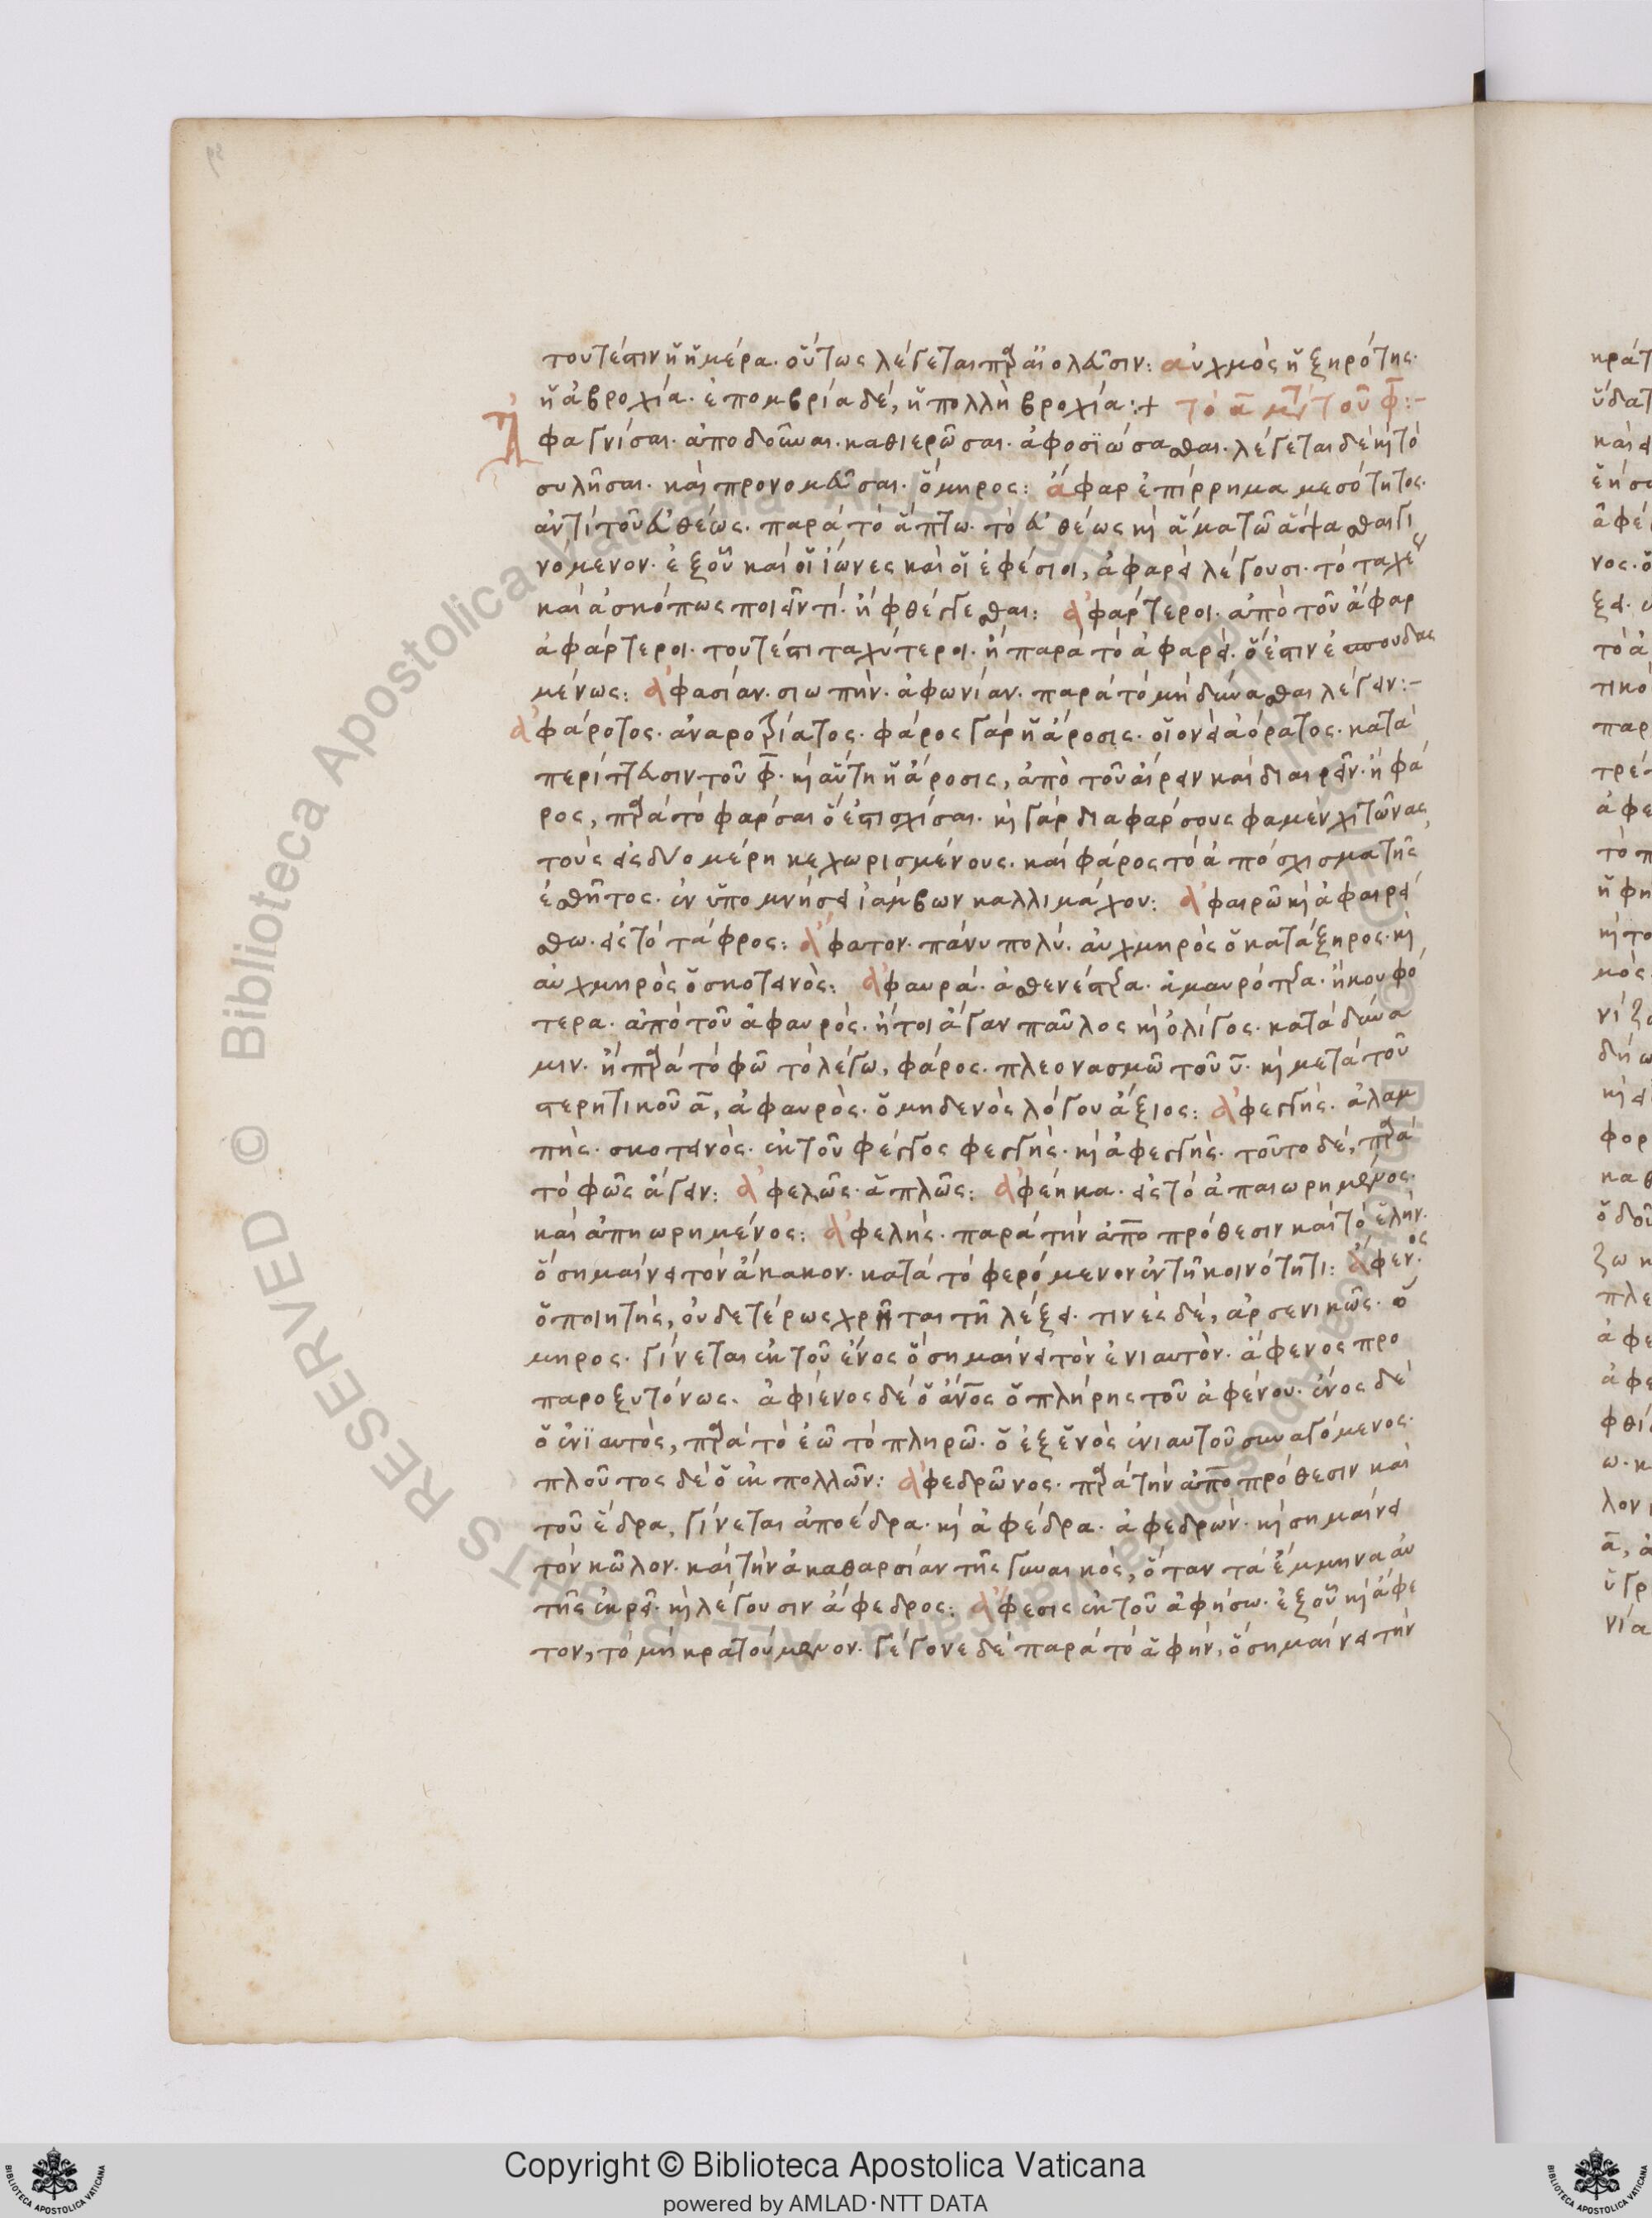 τουτέστιν ἡ ἡμέρα. οὕτως λέγεται παρ' αἰολεῦσιν: αὐχμὸς ἡ ξηρότης.
ἡ ἀβροχία. ἐπομβρία δὲ, ἡ πολλὴ βροχία:+ τὸ ᾱ μετὰ τοῦ φ̄:-
Ἀφαγνίσαι. ἀποδοῦναι. καθιερῶσαι. ἀφοσϊώσασθαι. λέγεται δὲ καὶ τὸ
συλῆσαι. καὶ προνομεῦσαι. ὅμηρος: ἄφαρ ἐπίρρημα μεσότητος.
ἀντὶ τοῦ εὐθέως. παρὰ τὸ ἅπτω. τὸ εὐθέως καὶ ἅμα τῶ ἅψασθαι γι
νόμενον. ἐξ οὗ καὶ οἱ ἴωνες καὶ οἱ ἐφέσιοι, ἀφαρεὶ λέγουσι. τὸ ταχὺ
καὶ ἀσκόπως ποιεῖν τί. ἢ φθέγγεσθαι: ἀφάρτεροι. ἀπὸ τοῦ ἄφαρ
ἀφάρτεροι. τουτέστι ταχύτεροι. ἢ παρὰ τὸ ἀφαρεί. ὅ ἐστιν ἐσπουδας
μένως: ἀφασίαν. σιωπήν. ἀφωνίαν. παρὰ τὸ μὴ δύνασθαι λέγειν:-
ἀφάροτος. ἀναροτρίατος. φάρος γὰρ ἡ ἄροσις. οἱονεὶ ἀόρατος. κατὰ
περίττευσιν τοῦ φ̄. καὶ αὕτη ἡ ἄροσις, ἀπὸ τοῦ αἴρειν καὶ διαιρεῖν. ἢ φά
ρος, παρὰ τὸ φαρσαι ὅ ἐστι σχίσαι. καὶ γὰρ διαφάρσους φαμὲν χιτῶνας
τοὺς εἰς δύο μέρη κεχωρισμένους. καὶ φάρος τὸ ἀπόσχισμα τῆς
ἐσθῆτος. ἐν ὑπομνήσει ἰάμβων καλλιμάχου: ἀφαιρῶ καὶ ἀφαιρεί
σθω. εἰς τὸ τάφρος: ἄφατον. πάνυ πολύ. αὐχμηρὸς ὁ κατάξηρος. καὶ
αὐχμηρὸς ὁ σκοτεινὸς: ἀφαυρά. ἀσθενέστερα. ἀμαυρότερα. ἢ κουφό
τερα. ἀπὸ τοῦ ἀφαυρὸς. ἤτοι ἄγαν παῦλος καὶ ὀλίγος. κατὰ δύνα
μιν. ἢ παρὰ τὸ φῶ τὸ λέγω, φάρος. πλεονασμῶ τοῦ ῡ. καὶ μετὰ τοῦ
στερητικοῦ ᾱ, ἀφαυρὸς. ὁ μηδενὸς λόγου ἄξιος: ἀφεγγής. ἀλαμ
πής. σκοτεινὸς. ἐκ τοῦ φέγγος φεγγὴς. καὶ ἀφεγγὴς. τοῦτο δὲ, παρὰ
τὸ φῶς ἄγειν: ἀφελῶς. ἁπλῶς: ἀφέηκα. εἰς τὸ ἀπαιωρημένος.
καὶ ἀπηωρημένος: ἀφελής. παρὰ τὴν ἀπὸ πρόθεσιν καὶ τὸ ἑλήν.
ὃ σημαίνει τὸν ἄκακον. κατὰ τὸ φερόμενον ἐν τῆ κοινότητι: ἄφενος.
ὁ ποιητής, οὐδετέρως χρῆται τῆ λέξει. τινὲς δὲ, ἀρσενικῶς. ὅ
μηρος. γίνεται ἐκ τοῦ ἕνος ὃ σημαίνει τὸν ἐνιαυτὸν. ἄφενος προ
παροξυτόνως. ἀφίενος δὲ ὁ ἄν̅ο̅ς ὁ πλήρης τοῦ ἀφένου. ἕνος δὲ
ὁ ἐνϊαυτὸς, παρὰ τὸ ἐῶ τὸ πληρῶ. ὁ ἐξ ἑνὸς ἐνιαυτοῦ συναγόμενος.
πλοῦτος δὲ ὁ ἐκ πολλῶν: ἀφεδρῶνος. παρὰ τὴν ἀπὸ πρόθεσιν καὶ
τοῦ ἕδρα, γίνεται ἀποέδρα. καὶ ἀφέδρα. ἀφεδρών. καὶ σημαίνει
τὸν κῶλον. καὶ τὴν ἀκαθαρσίαν τῆς γυναικὸς, ὅταν τὰ ἔμμηνα αὐ
τῆς ἐκρεῖ. καὶ λέγουσιν ἄφεδρος: ἄφεσις ἐκ τοῦ ἀφήσω. ἐξ οὗ καὶ ἄφε
τον, τὸ μὴ κρατούμενον. γέγονε δὲ παρὰ τὸ ἁφήν, ὃ σημαίνει τὴν
Copyright © Biblioteca Apostolica Vaticana
powered by AMLAD·NTT DATA